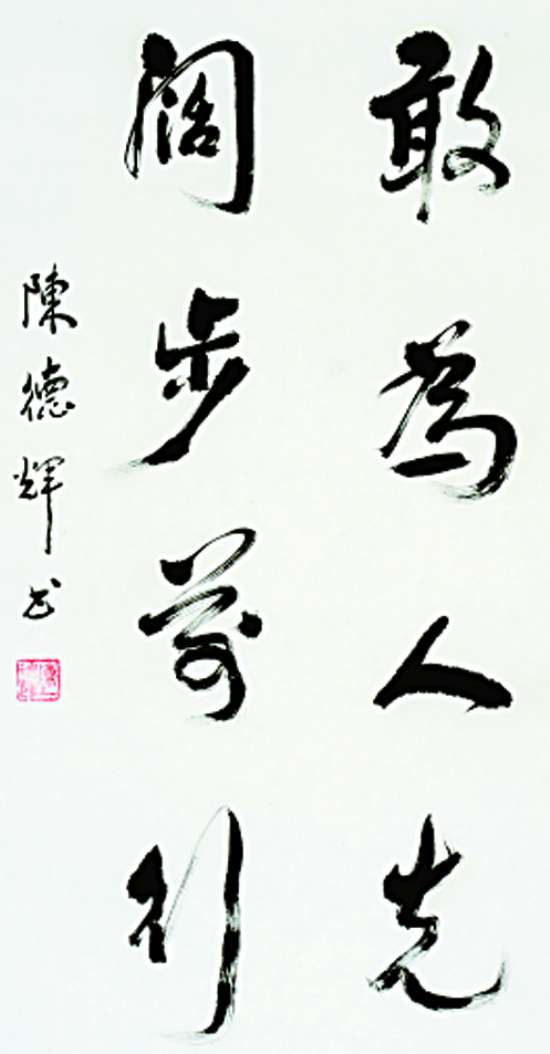 敢為人先
闊步前行
陳德輝书